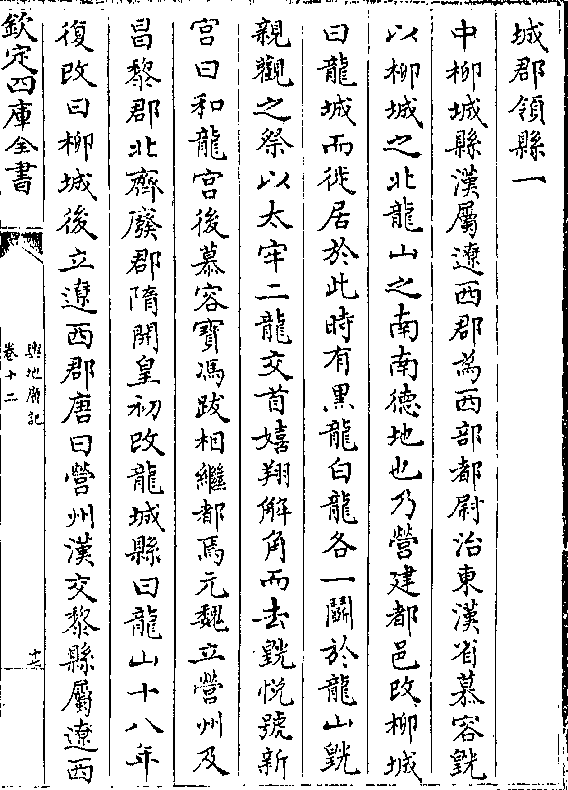 城郡領縣一
中柳城縣漢屬遼西郡為西部都尉治東漢省慕容皝
以柳城之北龍山之南南德地也乃營建都邑改柳城
曰龍城而徙居於此時有黒龍白龍各一鬭於龍山皝
親觀之祭以太牢二龍交首嬉翔解角而去皝悦號新
宫曰和龍宫後慕容寶馮跋相繼都焉元魏立營州及
昌黎郡北齊廢郡隋開皇初改龍城縣曰龍山十八年
復改曰柳城後立遼西郡唐曰營州漢交黎縣屬遼西
欽定四庫全書
輿地廣記
卷十二